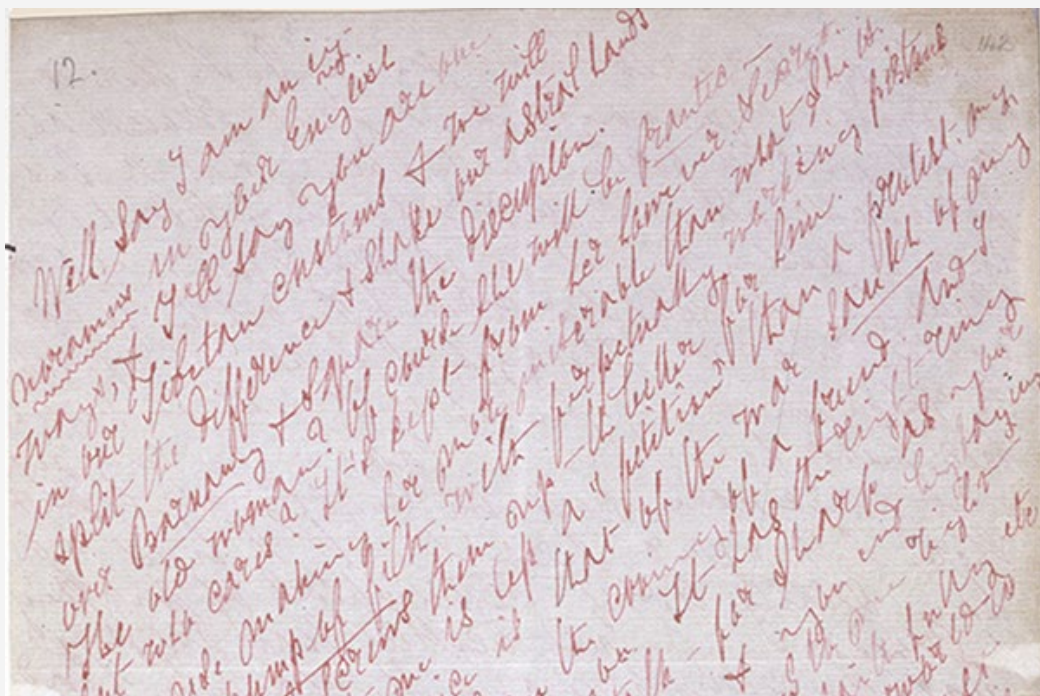 12.
Well say I am an ig-
noramus in your English
ways, & I'll say you are one
in our Tibetan customs & we will
split the difference & shake our astral hands
over Barnaway & square the discuption.
The old woman? Of course she will be frantic —
but who cares? It's kept from her however secret.
use making her more miserable than what she is.
pump of filth with perpetually working pistons
screws them up — the better for him.
me is less a "petition" than a protest, my
is that of the war sankh of my
the cooing of a friend. And I
It has the right ring
for sharp as your
& you end by saying